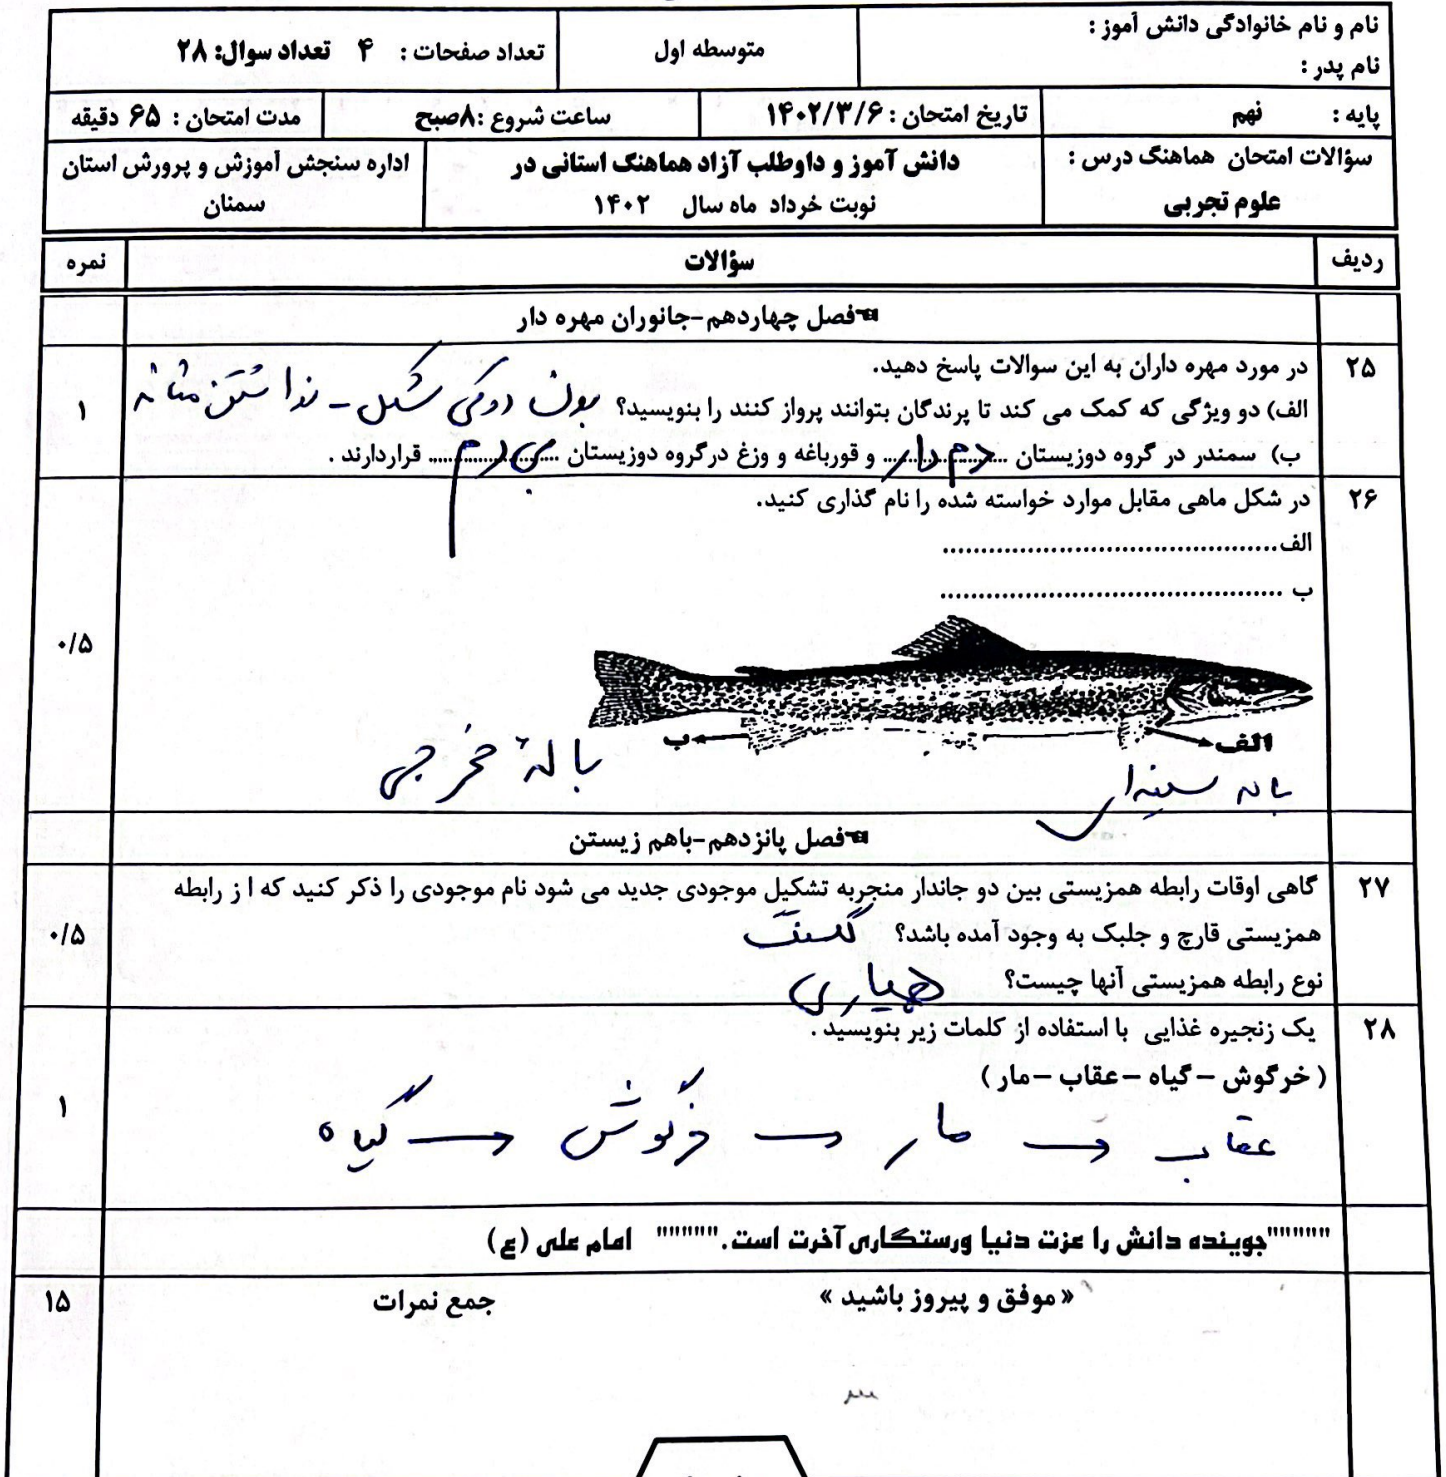 نام و نام خانوادگی دانش آموز :
نام پدر :
متوسطه اول
تعداد صفحات : ۴ تعداد سوال: ۲۸
پایه : نهم
تاریخ امتحان : ۱۴۰۲/۳/۶
ساعت شروع :۸صبح
مدت امتحان : ۶۵ دقیقه
سؤالات امتحان هماهنگ درس :
علوم تجربی
دانش آموز و داوطلب آزاد هماهنگ استانی در
نوبت خرداد ماه سال ۱۴۰۲
اداره سنجش آموزش و پرورش استان
سمنان
ردیف سؤالات نمره
فصل چهاردهم-جانوران مهره دار
۲۵ در مورد مهره داران به این سوالات پاسخ دهید.
الف) دو ویژگی که کمک می کند تا پرندگان بتوانند پرواز کنند را بنویسید؟ بدن دوکی شکل - نداشتن مثانه ۱
ب) سمندر در گروه دوزیستان ...دم دار... و قورباغه و وزغ درگروه دوزیستان ...بی دم... قراردارند .
۲۶ در شکل ماهی مقابل موارد خواسته شده را نام گذاری کنید.
الف............................................
ب ............................................
۰/۵
الف ب
باله سینه‌ای
بالهٔ مخرجی
فصل پانزدهم-باهم زیستن
۲۷ گاهی اوقات رابطه همزیستی بین دو جاندار منجربه تشکیل موجودی جدید می شود نام موجودی را ذکر کنید که ا ز رابطه
همزیستی قارچ و جلبک به وجود آمده باشد؟ گلسنگ ۰/۵
نوع رابطه همزیستی آنها چیست؟ همیاری
۲۸ یک زنجیره غذایی با استفاده از کلمات زیر بنویسید .
( خرگوش – گیاه – عقاب –مار )
۱
عقاب ← مار ← خرگوش ← گیاه
""""""جوینده دانش را عزت دنیا ورستگاری آخرت است."""""" امام علی (ع)
« موفق و پیروز باشید » جمع نمرات ۱۵